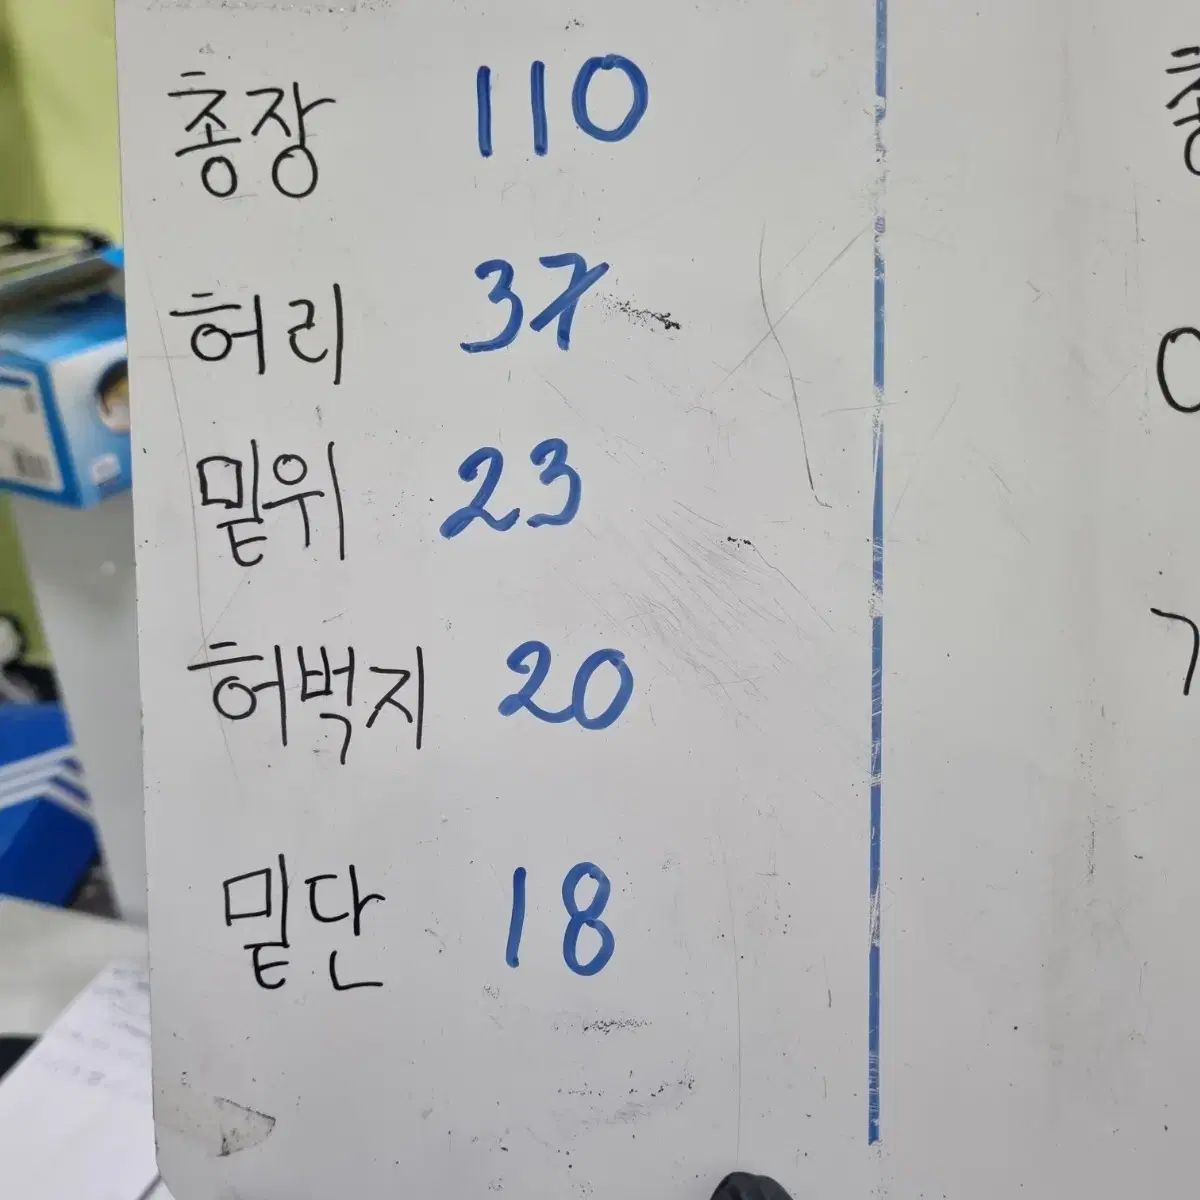 총장 110
허리 37
밑위 23
허벅지 20
밑단 18